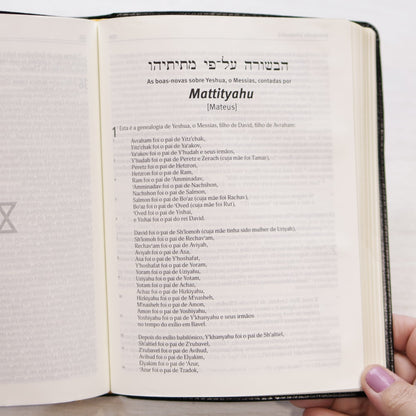 הבשורה על-פי מתיתיהו
As boas-novas sobre Yeshua, o Messias, contadas por
Mattityahu
[Mateus]
1 Esta é a genealogia de Yeshua, o Messias, filho de David, filho de Avraham:
Avraham foi o pai de Yitz'chak,
Yitz'chak foi o pai de Ya'akov,
Ya'akov foi o pai de Y'hudah e seus irmãos,
Y'hudah foi o pai de Peretz e Zerach (cuja mãe foi Tamar),
Peretz foi o pai de Hetzron,
Hetzron foi o pai de Ram,
Ram foi o pai de 'Amminadav,
'Amminadav foi o pai de Nachshon,
Nachshon foi o pai de Salmon,
Salmon foi o pai de Bo'az (cuja mãe foi Rachav),
Bo'az foi o pai de 'Oved (cuja mãe foi Rut),
'Oved foi o pai de Yishai,
e Yishai foi o pai do rei David.
David foi o pai de Sh'lomoh (cuja mãe tinha sido mulher de Uriyah),
Sh'lomoh foi o pai de Rechav'am,
Rechav'am foi o pai de Aviyah,
Aviyah foi o pai de Asa,
Asa foi o pai de Y'hoshafat,
Y'hoshafat foi o pai de Yoram,
Yoram foi o pai de Uziyahu,
Uziyahu foi o pai de Yotam,
Yotam foi o pai de Achaz,
Achaz foi o pai de Hizkiyahu,
Hizkiyahu foi o pai de M'nasheh,
M'nasheh foi o pai de Amon,
Amon foi o pai de Yoshiyahu,
Yoshiyahu foi o pai de Y'khanyahu e seus irmãos
no tempo do exílio em Bavel.
Depois do exílio babilônico, Y'khanyahu foi o pai de Sh'altiel,
Sh'altiel foi o pai de Z'rubavel,
Z'rubavel foi o pai de Avihud,
Avihud foi o pai de Elyakim,
Elyakim foi o pai de 'Azur,
'Azur foi o pai de Tzadok,